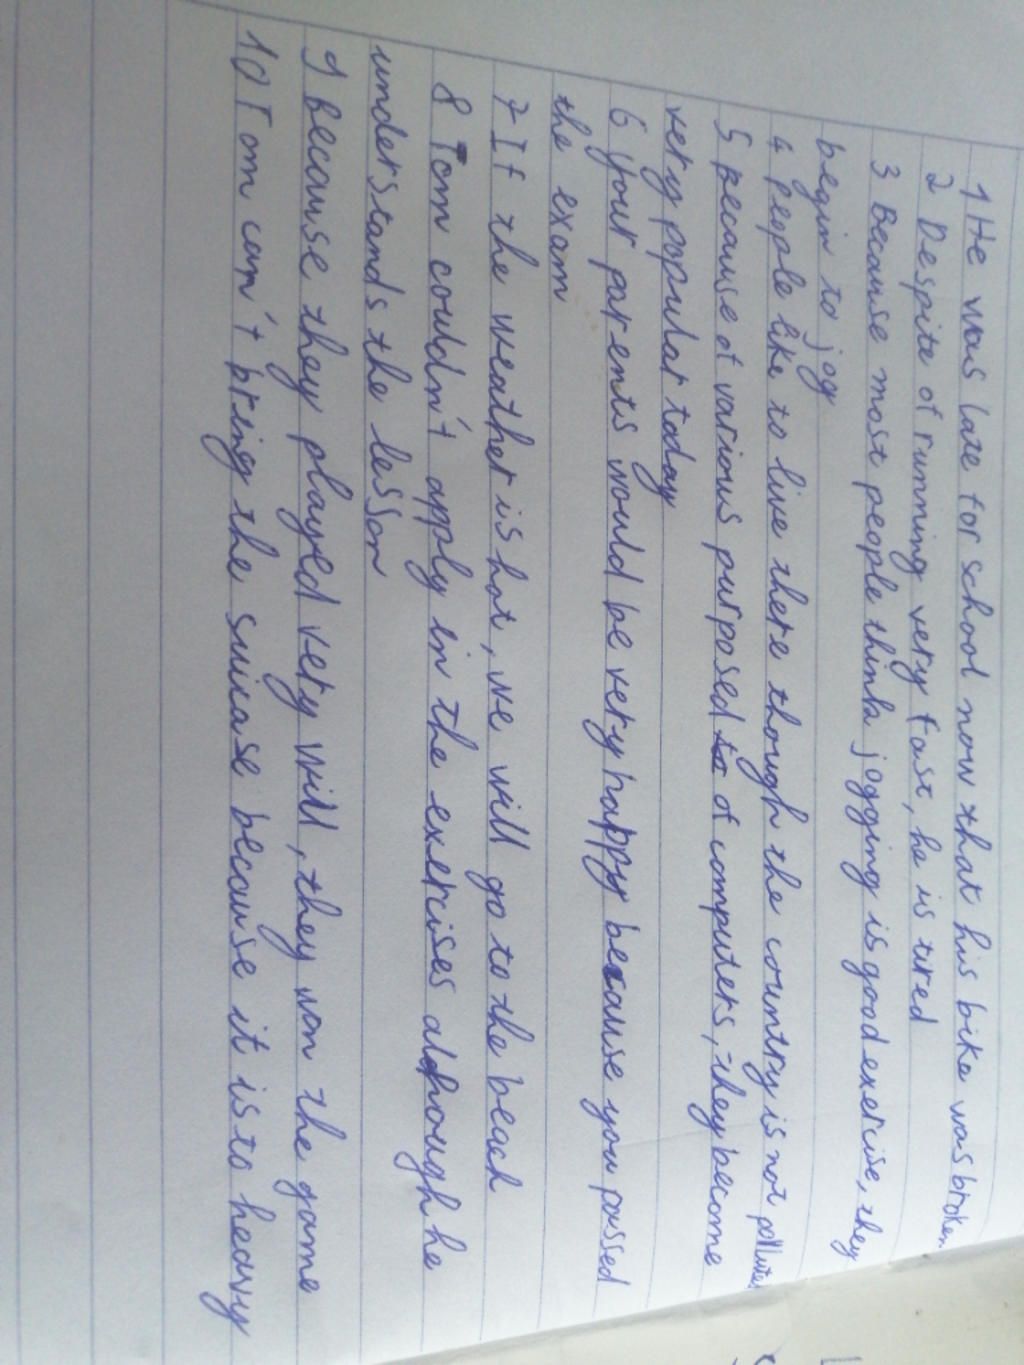 1 He was late for school now that his bike was broken
2 Despite of running very fast, he is tired
3 Because most people think jogging is good exercise, they
begin to jog
4 people like to live there though the country is not pollutes
5 Because of various purposed of computers, they become
very popular today
6 your parents would be very happy because you passed
the exam
7 If the weather is hot, we will go to the beach
8 Tom couldn't apply in the exercises although he
understands the lesson
9 because they played very will, they won the game
10 Tom can't bring the suicase because it is to heavy